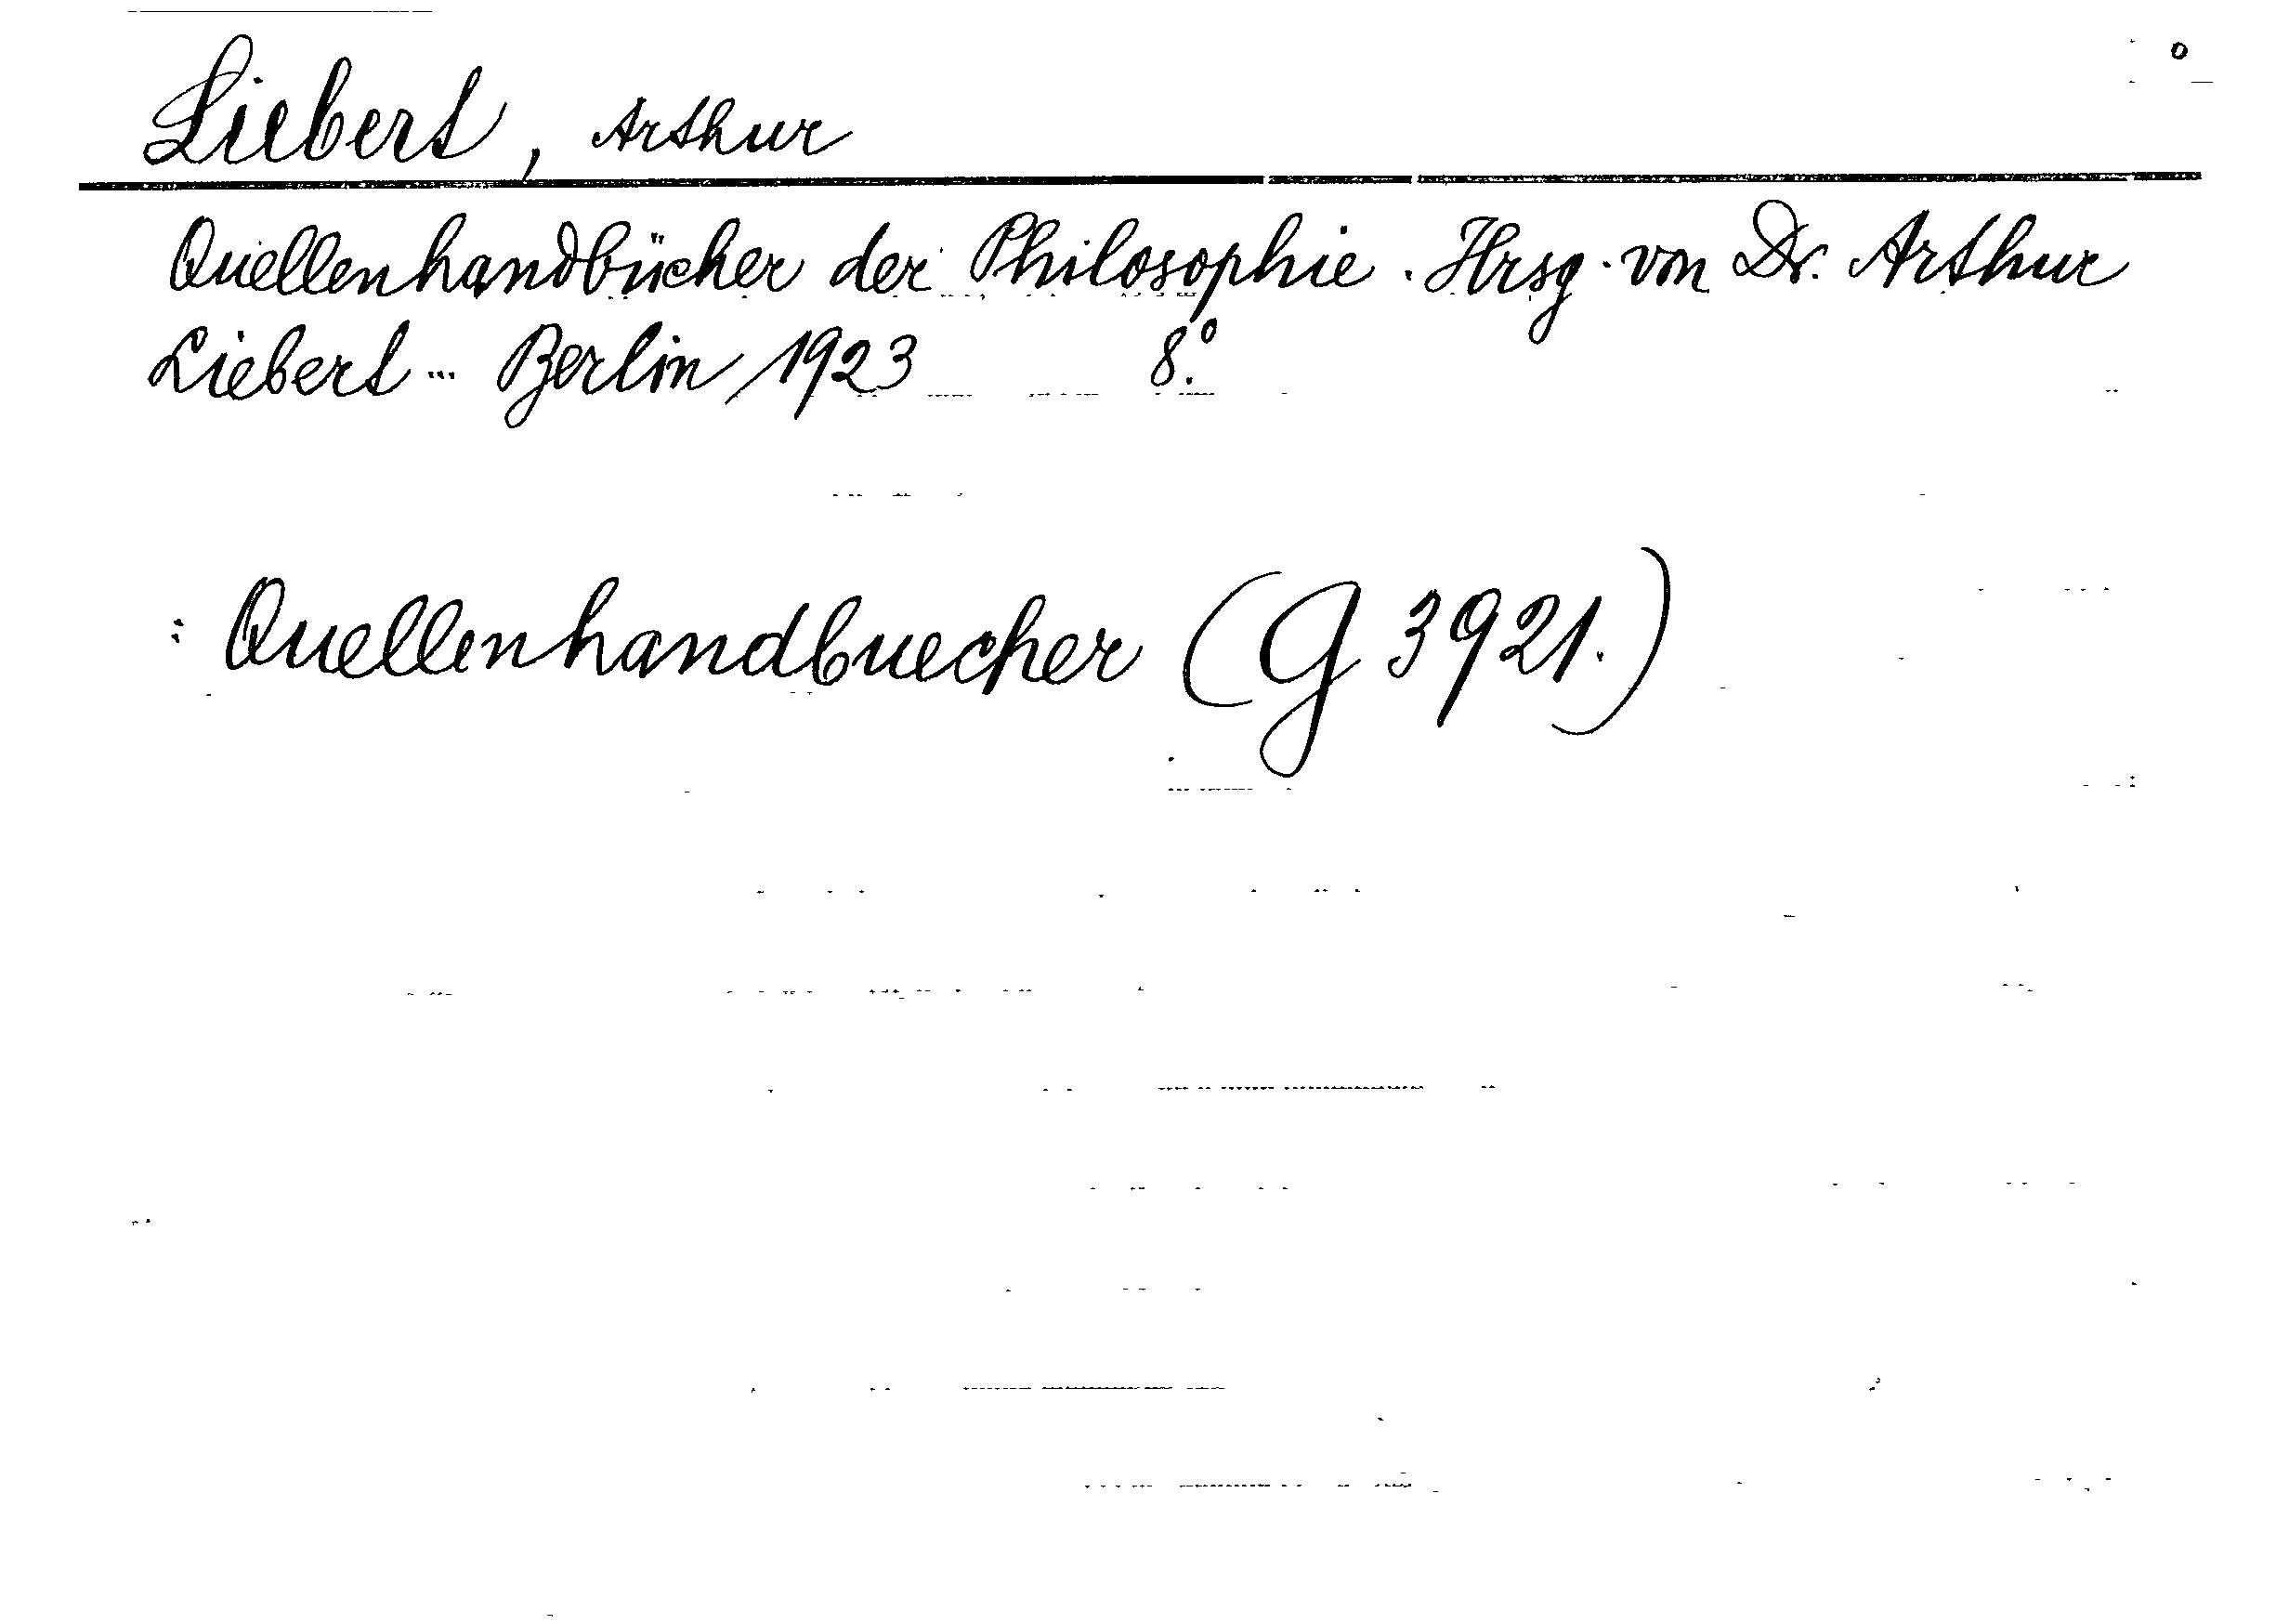 Liebert, Arthur
Quellenhandbücher der Philosophie. Hrsg. von Dr. Arthur
Liebert ... Berlin, 1923 8.°
: Quellenhandbuecher (G 3921.)